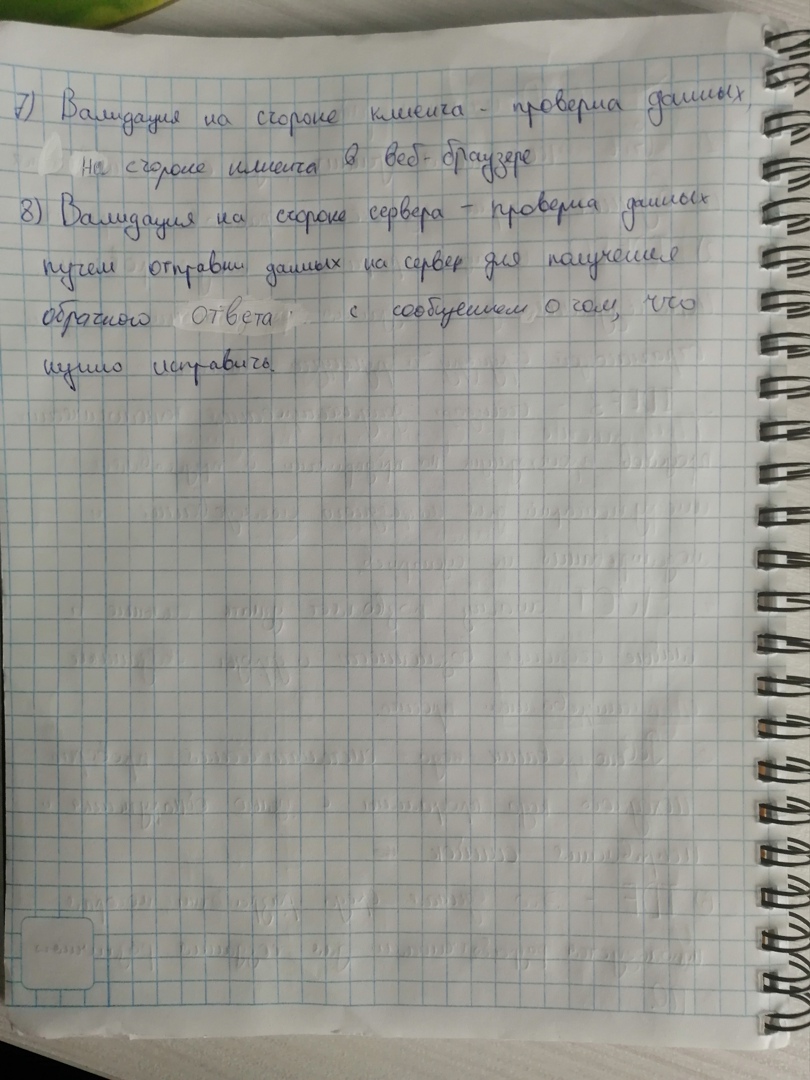 7) Валидация на стороне клиента - проверка данных
на стороне клиента в веб-браузере
8) Валидация на стороне сервера - проверка данных
путем отправки данных на сервер для получения
обратного ответа с сообщением о том, что
нужно исправить.